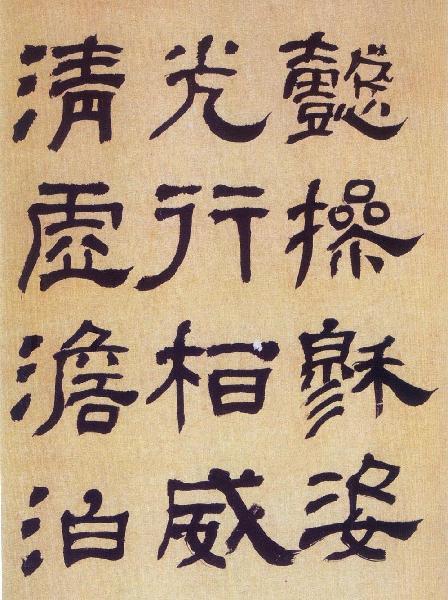 懿操穆姿
光行相威
清虚澹泊